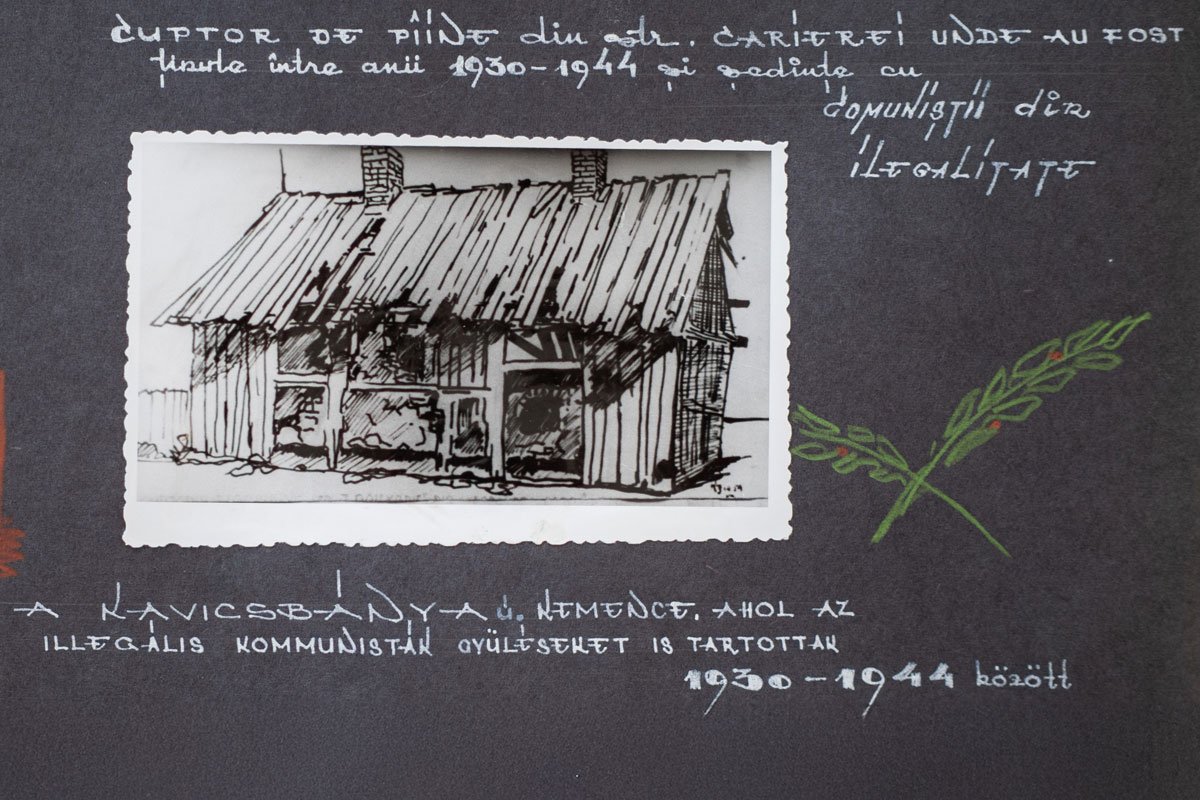 CUPTOR DE PÎINE din str. CARIEREI UNDE AU FOST
ținute între anii 1930-1944 și ședințe cu
COMUNIȘTII din
ILEGALITATE
A KAVICSBÁNYA ú. KEMENCE, AHOL AZ
ILLEGÁLIS KOMMUNISTÁK GYÜLÉSEKET IS TARTOTTAK
1930-1944 között